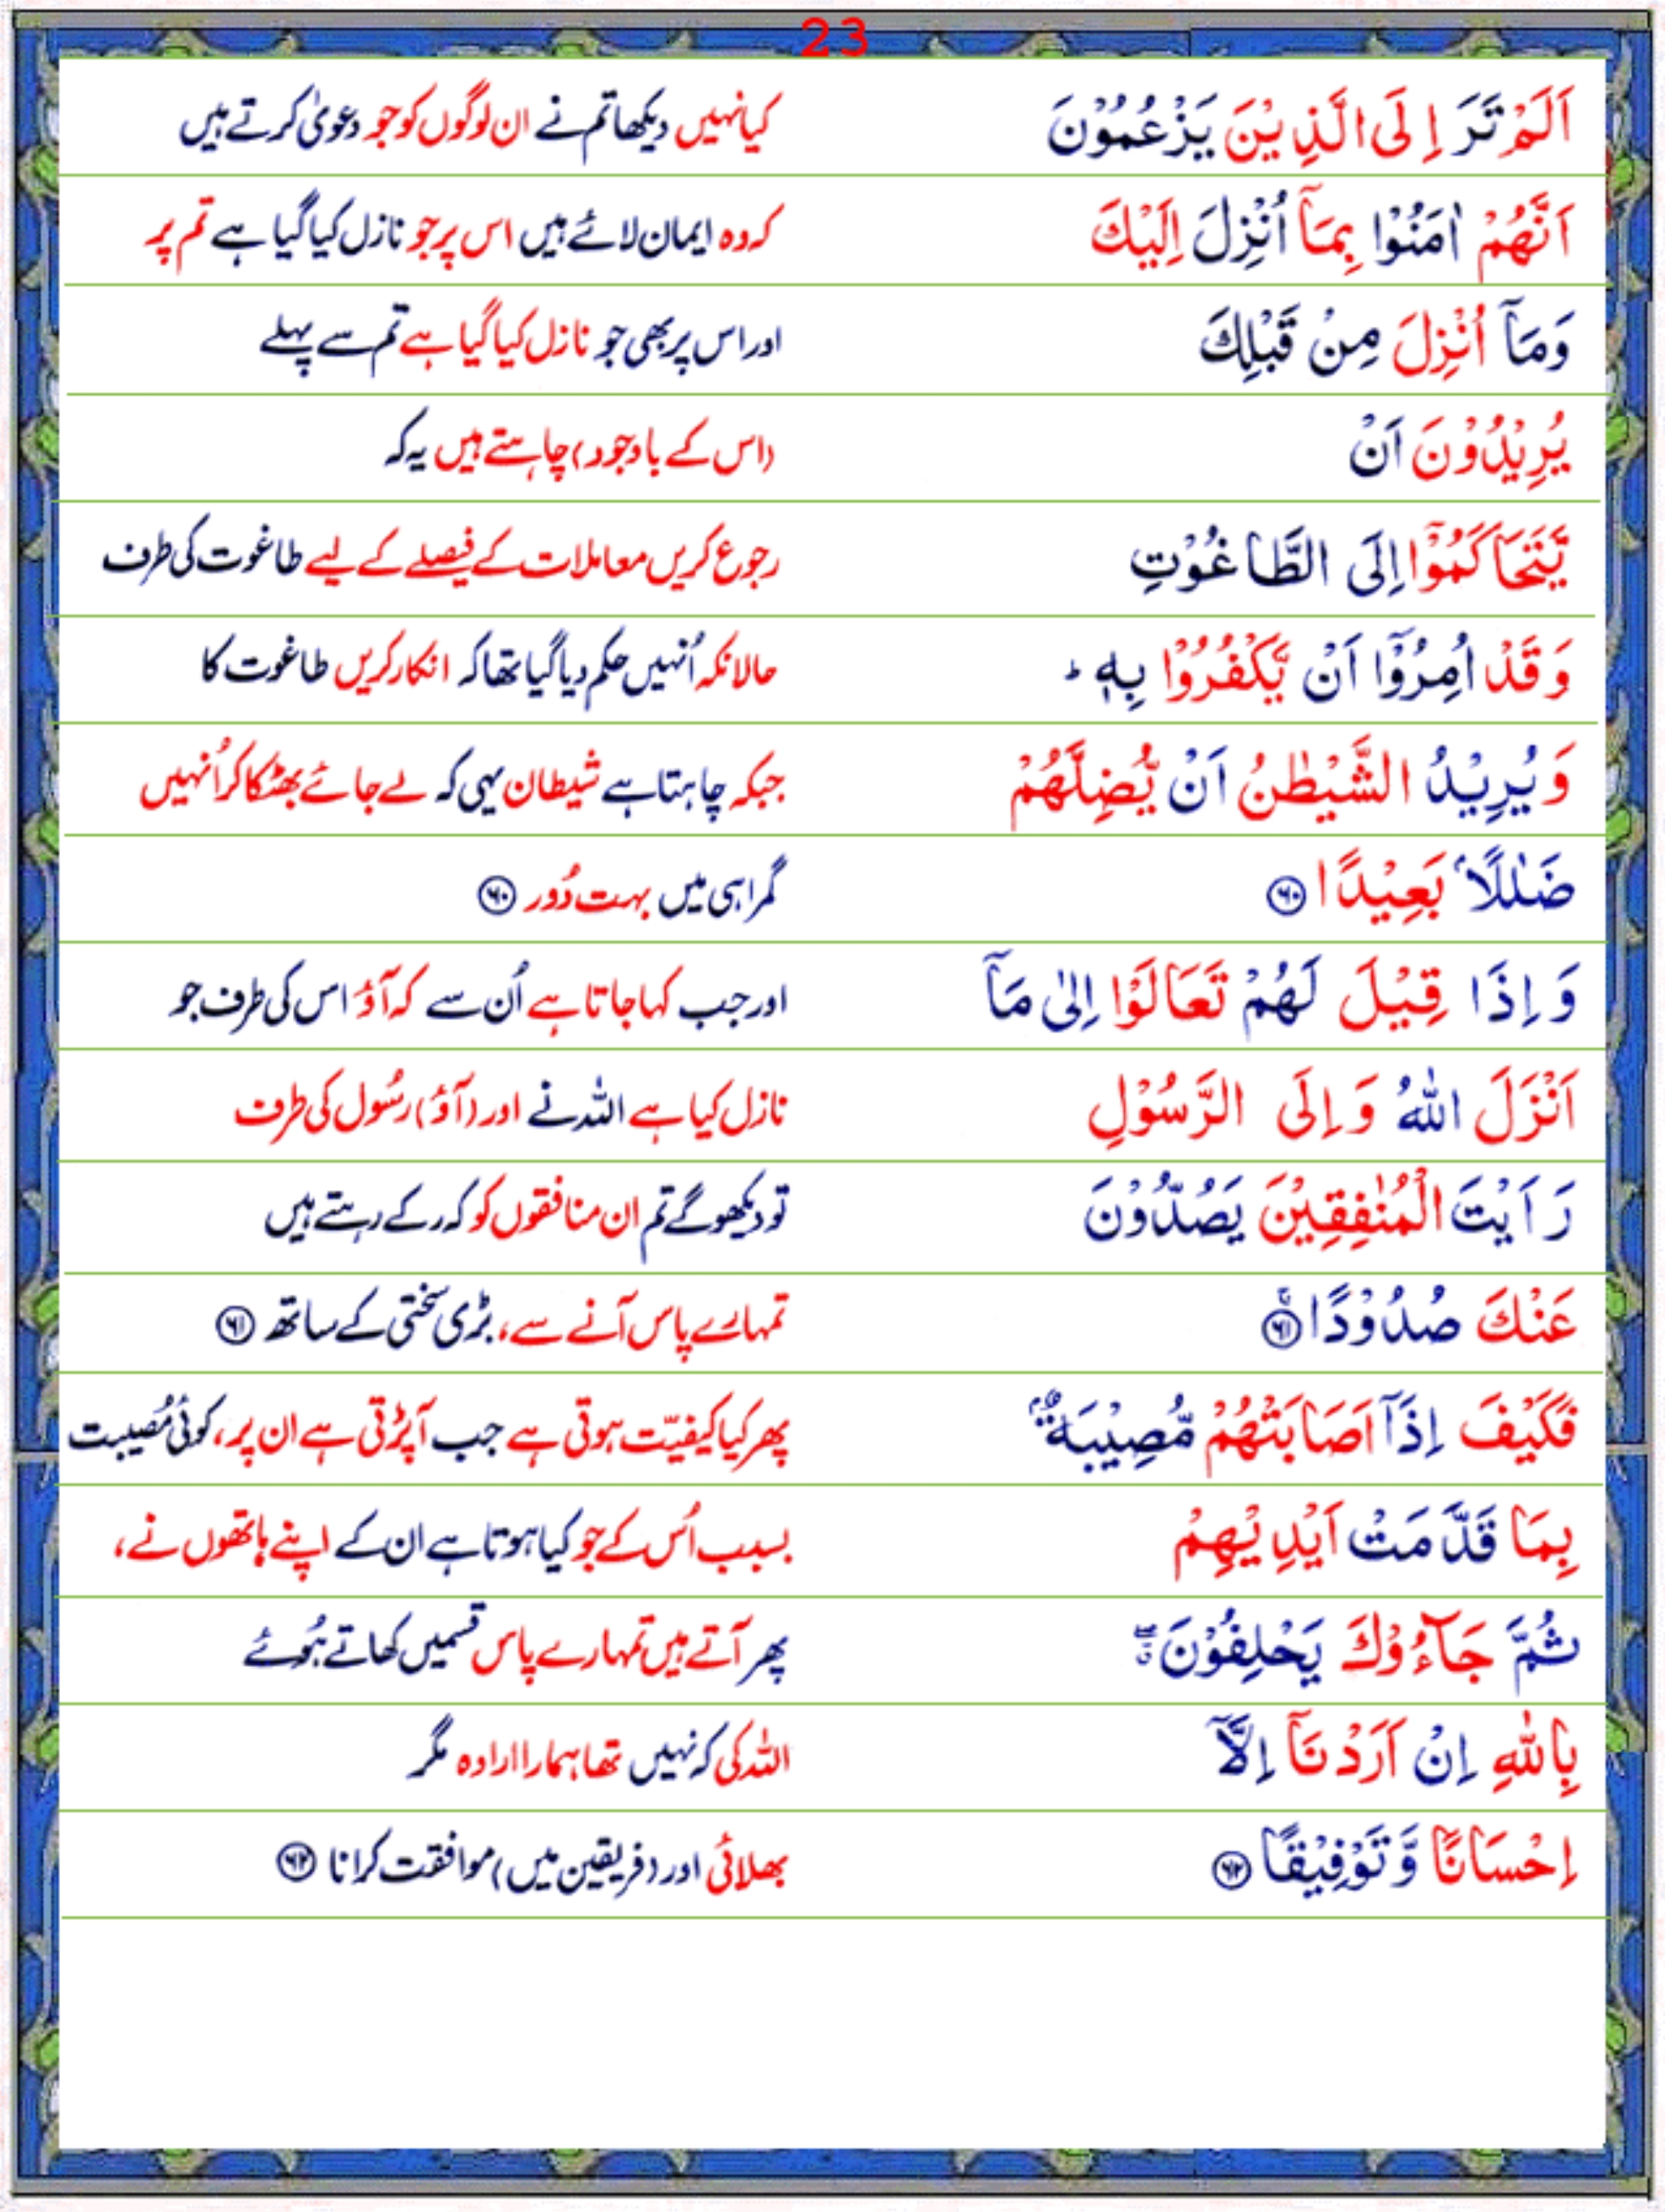 23
اَلَمْ تَرَ اِلَى الَّذِيْنَ يَزْعُمُوْنَ کیا نہیں دیکھا تم نے ان لوگوں کو جو دعویٰ کرتے ہیں
اَنَّهُمْ اٰمَنُوْا بِمَآ اُنْزِلَ اِلَيْكَ کہ وہ ایمان لائے ہیں اس پر جو نازل کیا گیا ہے تم پر
وَمَآ اُنْزِلَ مِنْ قَبْلِكَ اور اس پر بھی جو نازل کیا گیا ہے تم سے پہلے
يُرِيْدُوْنَ اَنْ (اس کے باوجود) چاہتے ہیں یہ کہ
يَّتَحَاكَمُوْٓا اِلَى الطَّاغُوْتِ رجوع کریں معاملات کے فیصلے کے لیے طاغوت کی طرف
وَقَدْ اُمِرُوْٓا اَنْ يَّكْفُرُوْا بِهٖ ؕ حالانکہ اُنہیں حکم دیا گیا تھا کہ انکار کریں طاغوت کا
وَيُرِيْدُ الشَّيْطٰنُ اَنْ يُّضِلَّهُمْ جبکہ چاہتا ہے شیطان یہی کہ لے جائے بھٹکا کر اُنہیں
ضَلٰلًاۢ بَعِيْدًا ﴿۶۰﴾ گمراہی میں بہت دُور ﴿۶۰﴾
وَاِذَا قِيْلَ لَهُمْ تَعَالَوْا اِلٰى مَآ اور جب کہا جاتا ہے اُن سے کہ آؤ اس کی طرف جو
اَنْزَلَ اللّٰهُ وَاِلَى الرَّسُوْلِ نازل کیا ہے اللہ نے اور (آؤ) رسُول کی طرف
رَاَيْتَ الْمُنٰفِقِيْنَ يَصُدُّوْنَ تو دیکھو گے تم ان منافقوں کو کہ رکے رہتے ہیں
عَنْكَ صُدُوْدًا ۚ﴿۶۱﴾ تمہارے پاس آنے سے، بڑی سختی کے ساتھ ﴿۶۱﴾
فَكَيْفَ اِذَآ اَصَابَتْهُمْ مُّصِيْبَةٌۢ پھر کیا کیفیّت ہوتی ہے جب آ پڑتی ہے ان پر، کوئی مُصیبت
بِمَا قَدَّمَتْ اَيْدِيْهِمْ بسبب اُس کے جو کیا ہوتا ہے ان کے اپنے ہاتھوں نے،
ثُمَّ جَآءُوْكَ يَحْلِفُوْنَ ۖۗ پھر آتے ہیں تمہارے پاس قسمیں کھاتے ہُوئے
بِاللّٰهِ اِنْ اَرَدْنَآ اِلَّآ اللہ کی کہ نہیں تھا ہمارا ارادہ مگر
اِحْسَانًا وَّتَوْفِيْقًا ﴿۶۲﴾ بھلائی اور (فریقین میں) موافقت کرانا ﴿۶۲﴾